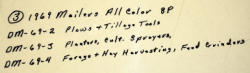 ③ 1969 Mailers All Color 8P
DM-69-2 Plows & Tillage Tools
DM-69-3 Planters, Cult. Sprayers,
DM-69-4 Forage & Hay Harvesting, Feed Grinders